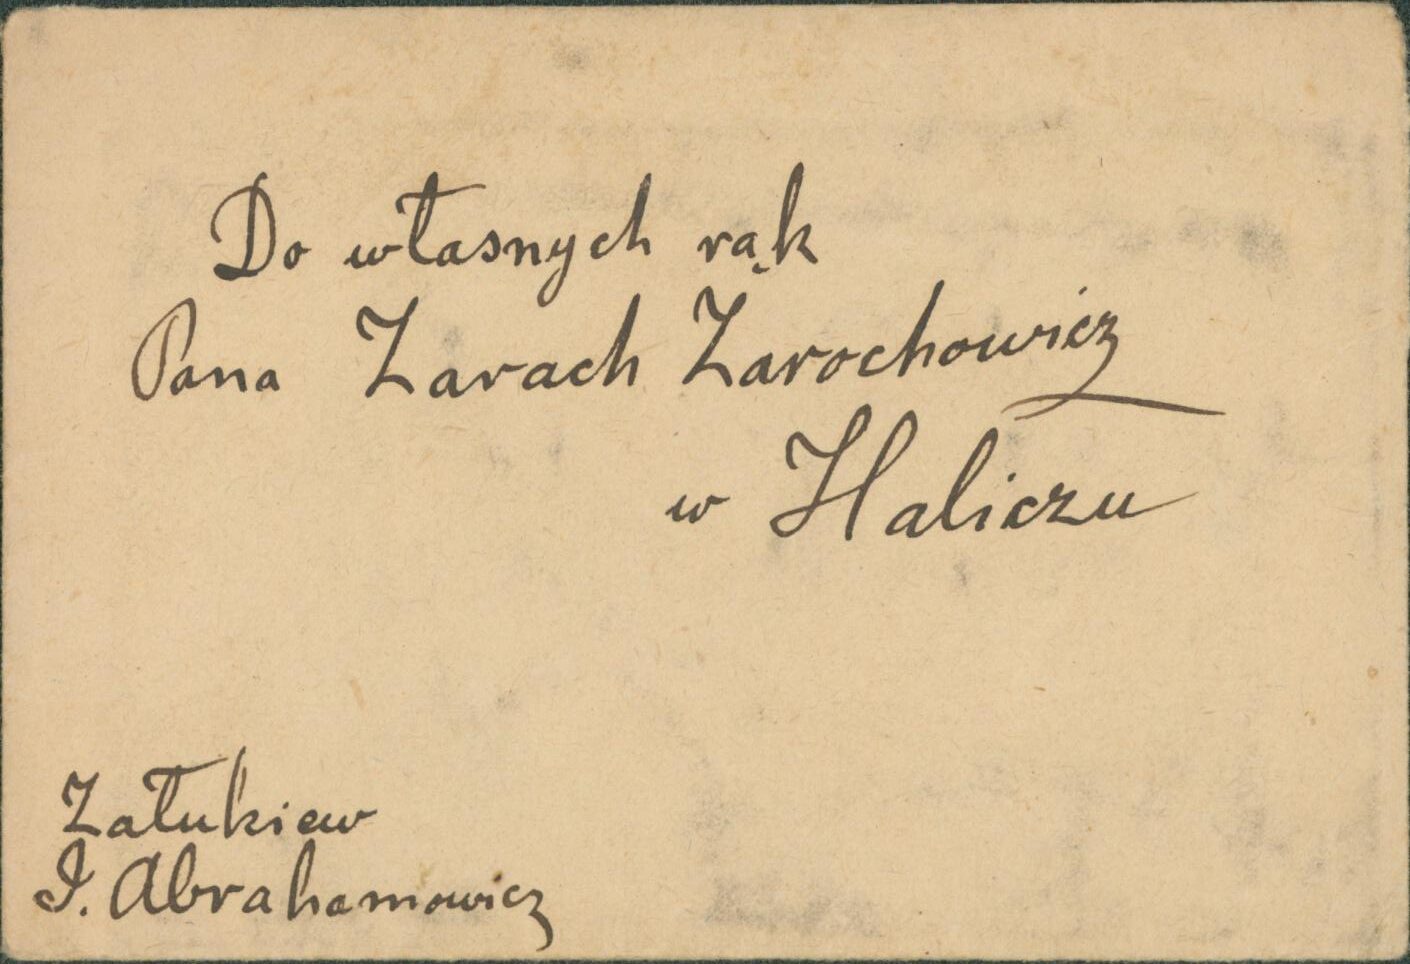 Do własnych rąk
Pana Zarach Zarochowicz
w Haliczu
Załukiew
I. Abrahamowicz